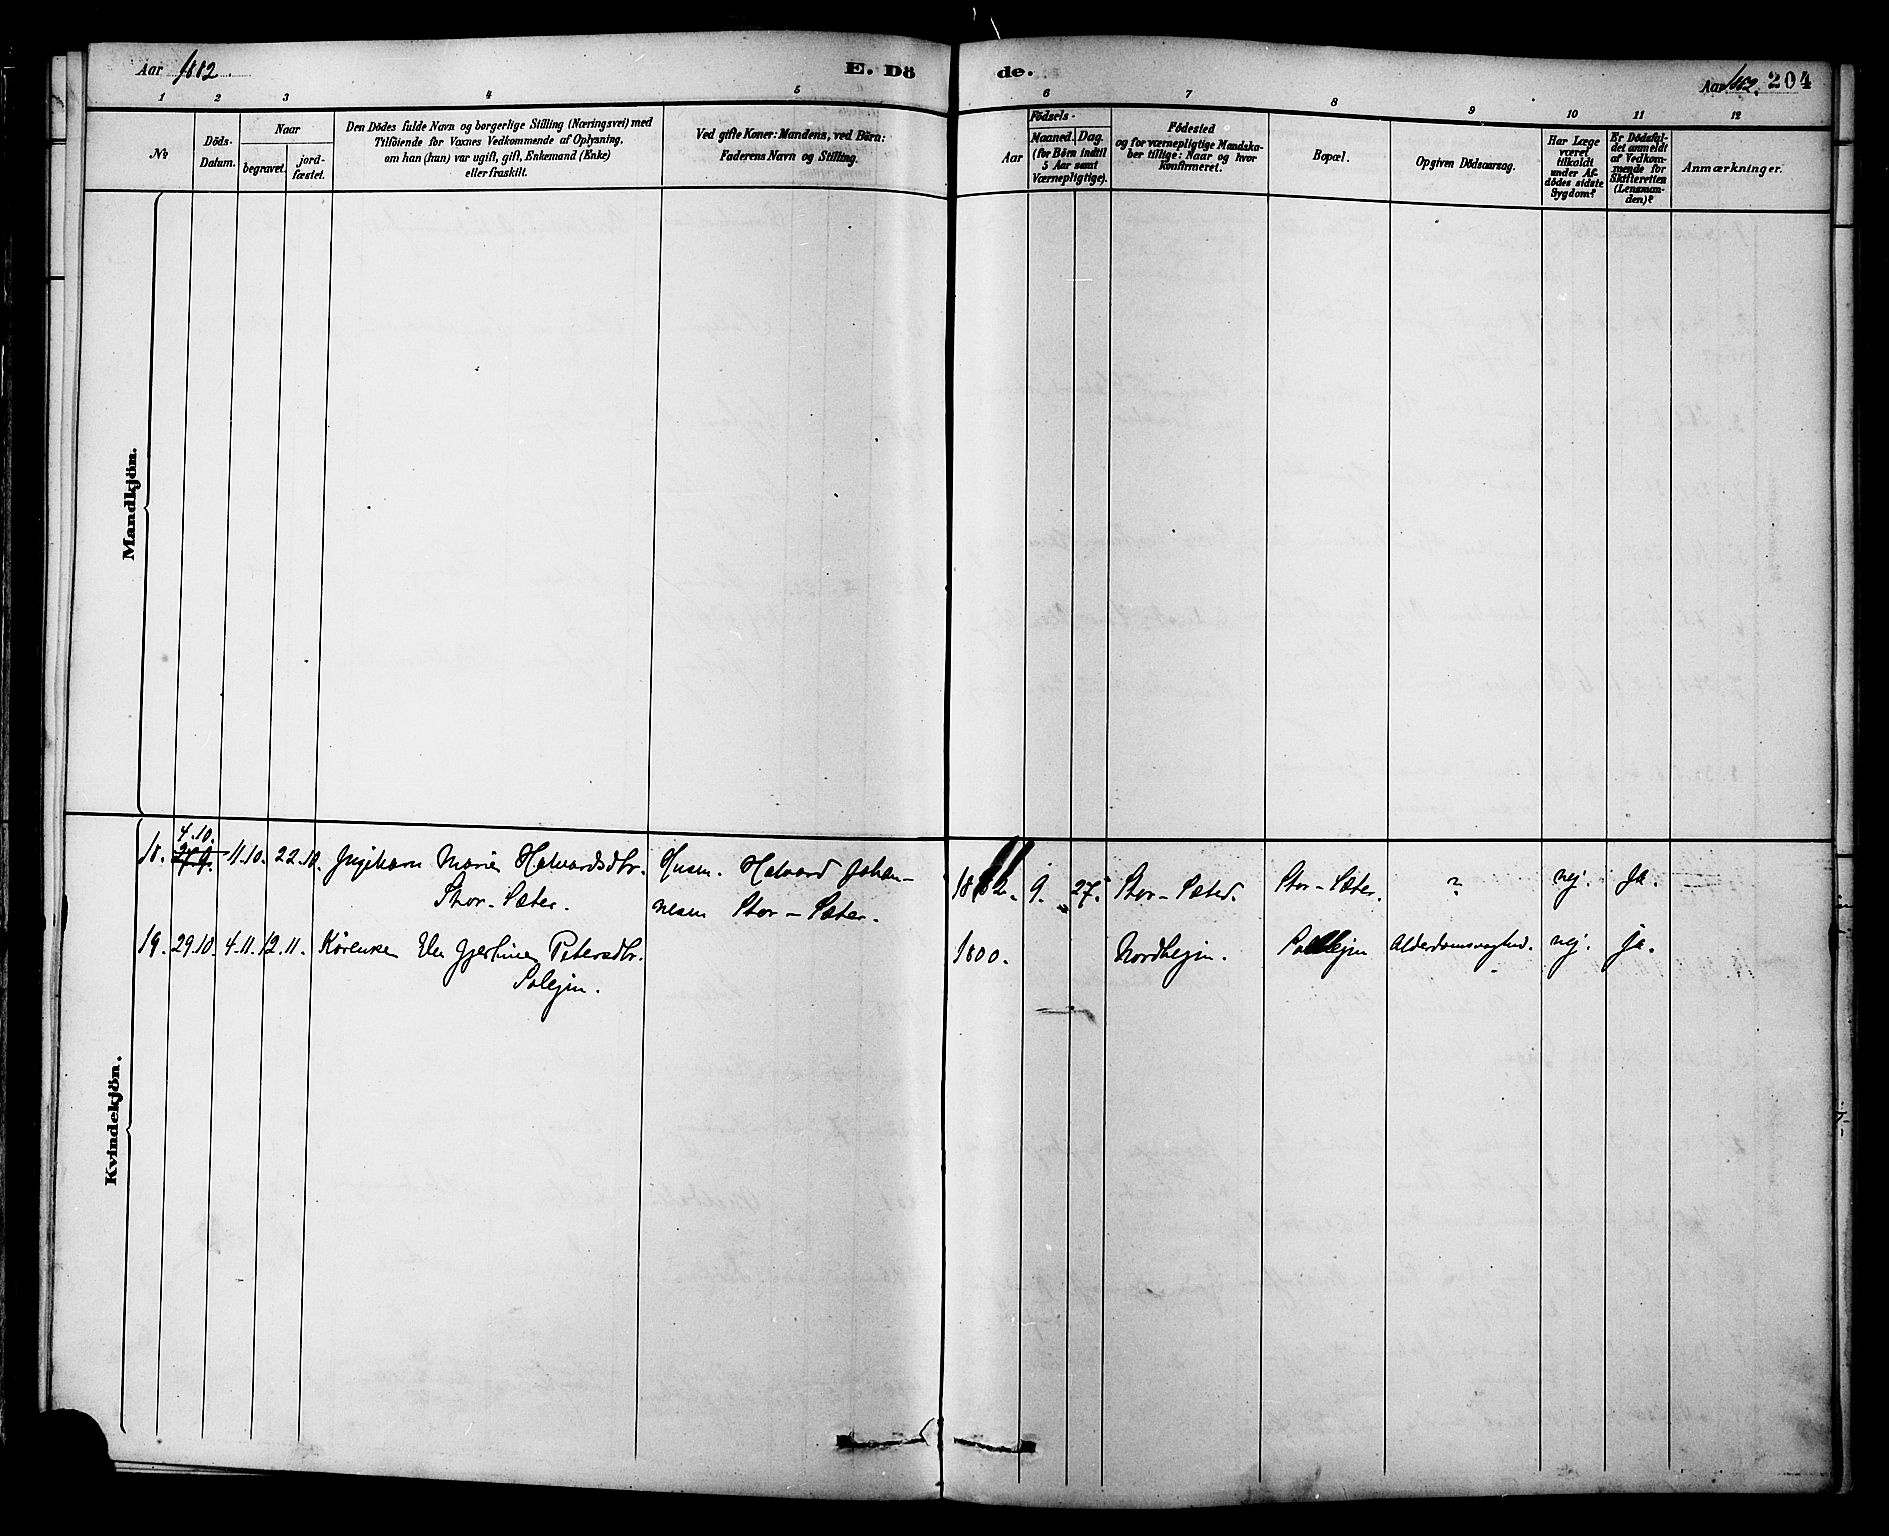 Aar 1882.
E. Dö
de.
Aar 1882. 204
1
2
3
4
5
6
7
8
9
10
11
12
No
Döds-
Datum.
Naar
begravet.
jord-
fæstet.
Den Dödes fulde Navn og borgerlige Stilling (Næringsvei) med
Tilföiende for Voxnes Vedkommende af Oplysning,
om han (hun) var ugift, gift, Enkemand (Enke)
eller fraskilt.
Ved gifte Koner: Mandens, ved Börn:
Faderens Navn og Stilling.
Födsels-
Aar
Maaned. Dag.
(for Börn indtil
5 Aar samt
Værnepligtige).
Födested
og for værnepligtige Mandska-
ber tillige: Naar og hvor
Konfirmeret.
Bopæl.
Opgiven Dödsaarsag.
Har Læge
været
tilkaldt
under Af-
dödes sidste
Sygdom?
Er Dödsfal-
det anmeldt
af Vedkom-
mende for
Skifteretten
(Lensman-
den)?
Anmærkninger.
Mandkjön.
Kvindekjön.
4.10.
18. 27.9. 11.10. 22.12. Ingeborg Marie Halvardsdtr. Husm. Halvard Johan- 1882. 9. 27. Stor-Sæter. Stor-Sæter. ? nej. Ja.
Stor-Sæter. nesen Stor-Sæter.
19. 29.10. 4.11. 12.11. Gjertine Petersdtr. 1800. Nordhejm. Solejm Alderdomssvaghed. nej. ja.
Solejm.